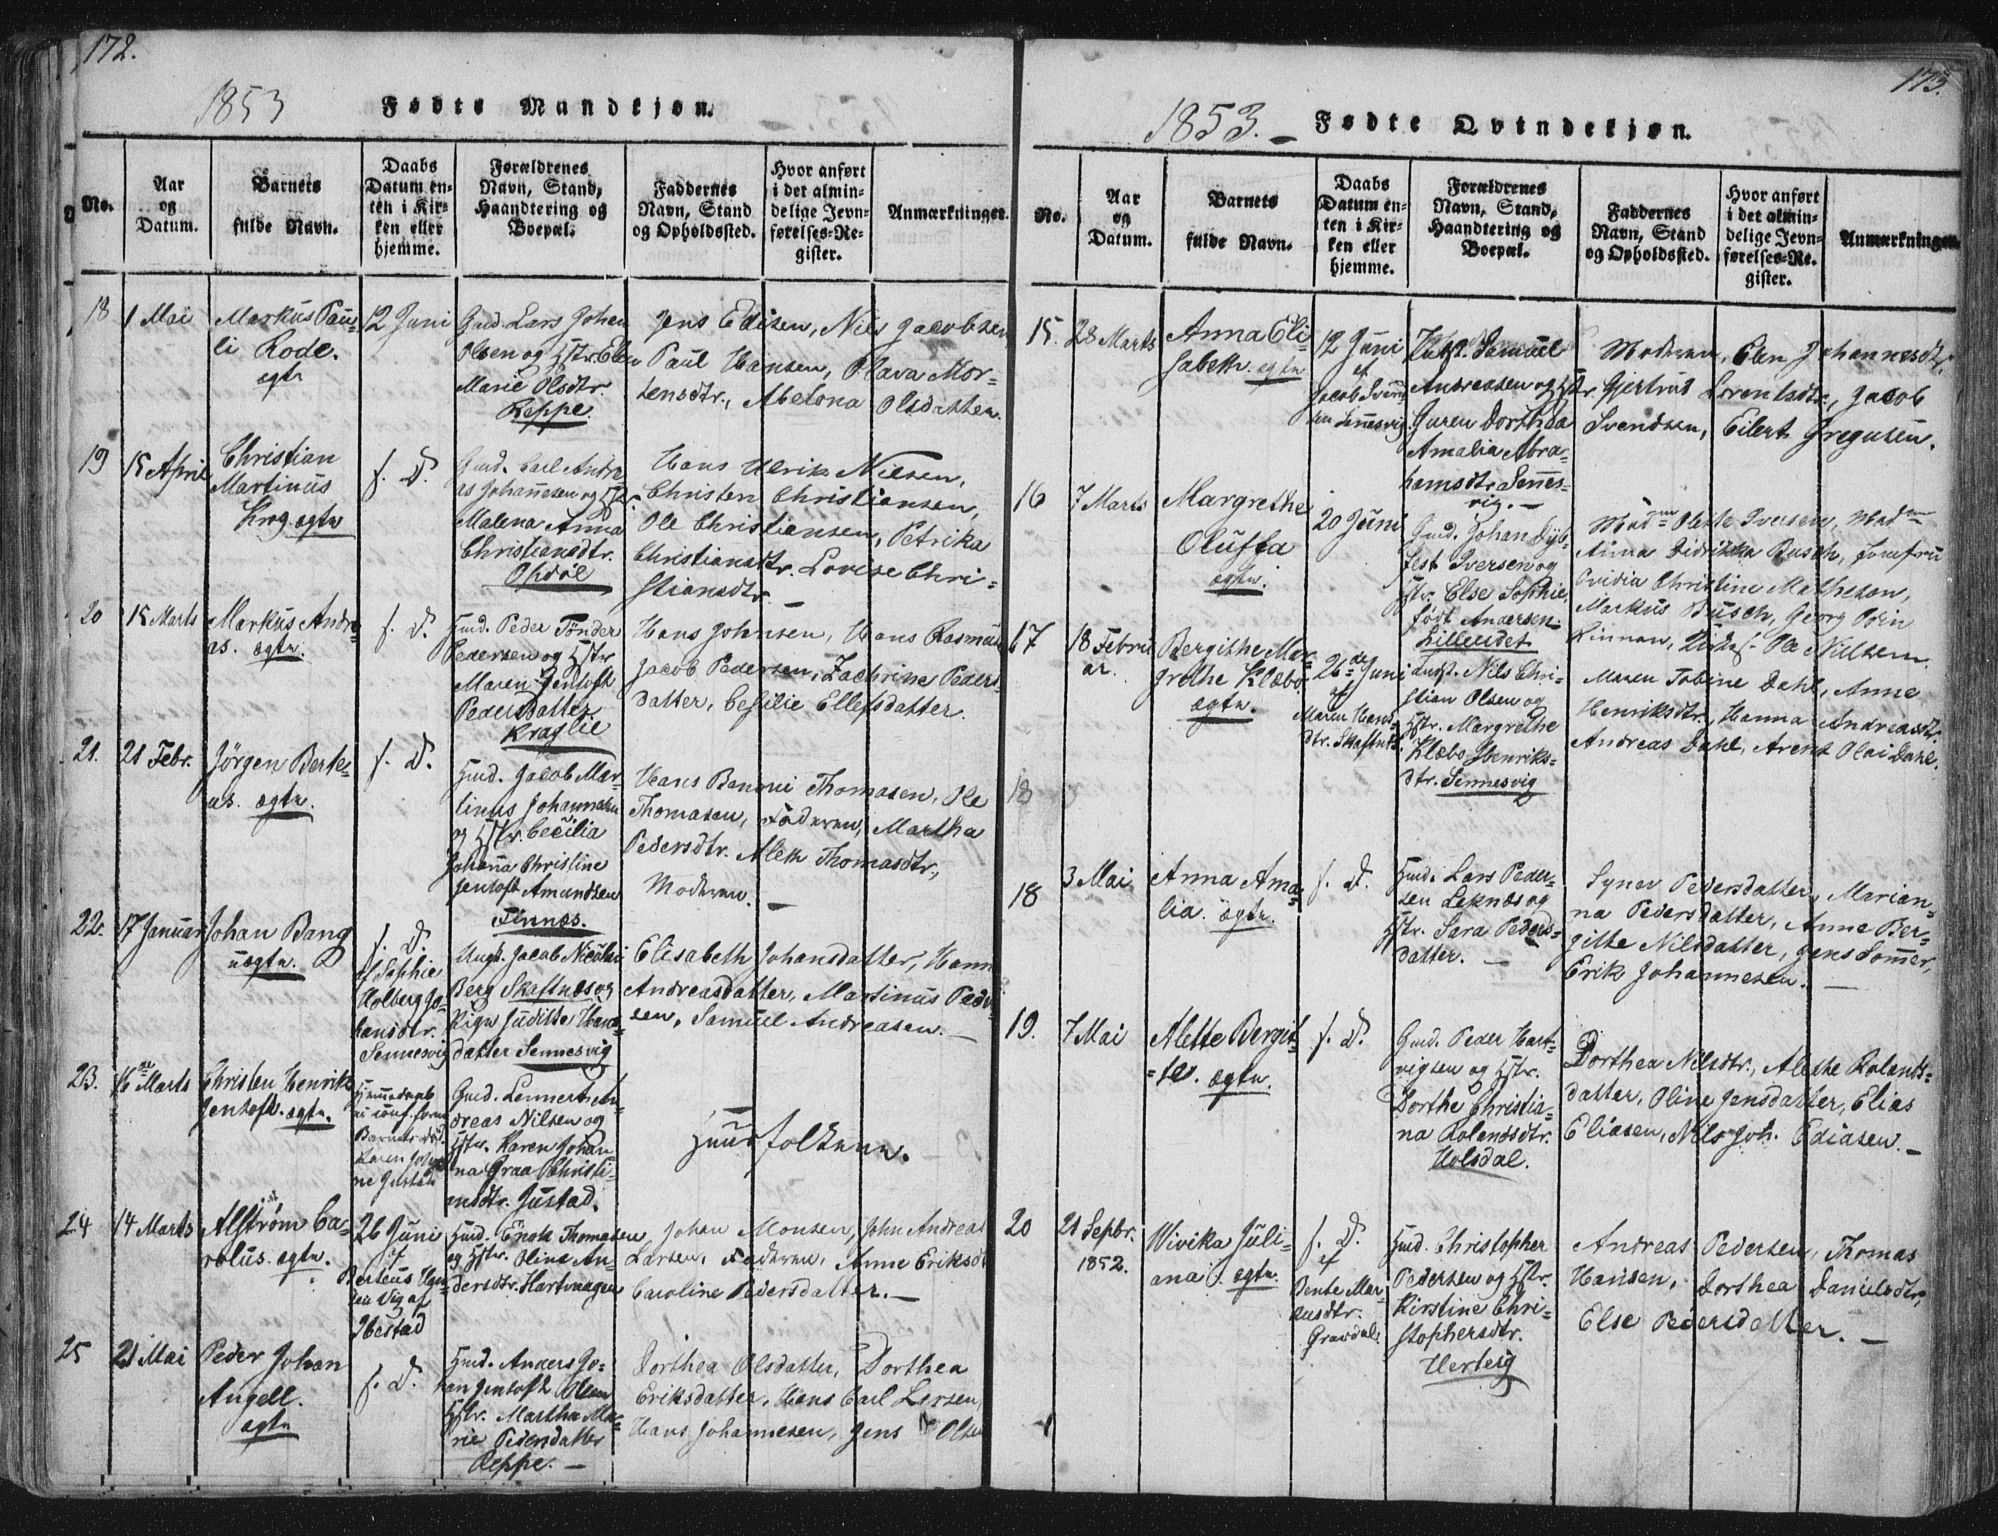 172.
1853 Fødte Mandkjøn.
No.
Aar
og
Datum.
Barnets
fulde Navn.
Daabs
Datum en-
ten i Kir-
ken eller
hjemme.
Forældrenes
Navn, Stand,
Haandtering og
Boepæl.
Faddernes
Navn, Stand
og Opholdssted.
Hvor anført
i det almin-
delige Jevn-
førelses-Re-
gister.
Anmærkninger.
18
1 Mai
Markus Pau-
li Rode.
ægte
12 Juni
Gmd. Lars Johan
Olsen og Hstr Elen
Marie Olsdtr.
Reppe.
Jens Edisen, Nils Jacobsen
Paul Hansen, Olava Mor-
tensdtr., Abelona Olsdatter.
19
15 April
Christian
Martinus
Krog ægte
s. D.
Gmd. Carl Andre-
as Johannesen og Hstr.
Malena Anna
Christiansdtr.
Opdøl
Hans Ulrik Nilsen,
Christen Christiansen,
Ole Christiansen, Petrika
Christiansdtr. Lovise Chri-
stiansdtr. —
20
15 Marts
Markus Andre-
as. ægte.
s. D.
Hmd. Peder Tønder
Pedersen og Hstr
Maren Jentoft
Pedersdatter
Kraglie
Hans Johnsen, Hans Rasmus
Jacob Pedersen, Zachrine Peders-
datter, Cesilie Ellefsdatter.
21.
21 Febr.
Jørgen Berte-
us. ægte.
s. D.
Hmd. Jacob Mar-
tinus Johannesen
og Hstr. Cecilia
Johanna Christine
Jentoft Amundsen
Finnæs.
Hans Benoni Thomasen, Ole
Thomasen, Faderen, Martha
Pedersdtr. Aleth Thomasdtr,
Moderen. —
22.
17 Januar
Johan Bang
uægte.
s. D.
af Sophie
Holberg Jo-
hansdtr.
Sennesvig
Ungk. Jacob Nicolai
Berg Skaftnæs og
Pigen Juditte Hans-
datter Sennesvig
Elisabeth Johansdatter, Hanna
Andreasdatter, Martinus Peder-
sen, Samuel Andreasen. —
23.
16de Marts
Christen Henrik
Jentoft. ægte.
Gmd. Lennert An-
dreas Nilsen og
Hstr. Karen Johan-
na Graa Christi-
ensdtr. Justad.
Huusfolkene.
24
14 Marts
Alfstrøm Ca-
rolus. ægte.
26 Juni
af
Berteus Han-
sen Vig af
Ibestad
Hmd. Enok Thomasen
og Hstr. Oline An-
dersdtr. Hartvaagen
Johan Monsen, John Andreas
Larsen, Faderen, Anne Eriksdtr
Caroline Pedersdatter. —
25
21 Mai
Peder Johan
Angell.
ægte
s. D.
Hmd. Anders Jo-
han Jentoft Olsen
Hstr. Martha Ma-
rie Pedersdatter
Reppe. —
Dorthea Olsdatter, Dorthea
Eriksdatter, Hans Carl Larsen,
Hans Johannesen, Jens Olsen
173.
1853. — Fødte Qvindekjøn.
No.
Aar
og
Datum.
Barnets
fulde Navn.
Daabs
Datum en-
ten i Kir-
ken eller
hjemme.
Forældrenes
Navn, Stand,
Haandtering og
Boepæl.
Faddernes
Navn, Stand
og Opholdssted.
Hvor anført
i det almin-
delige Jevn-
førelses-Re-
gister.
Anmærkninger.
15.
28 Marts
Anna Eli-
sabeth. ægte
12 Juni
af
Jacob Svend-
sen Sennesvig
Indst. Samuel
Andreasen og Hstr.
Guren Dorthea
Amalia Abra-
hamsdtr Sennes-
vig. —
Moderen, Elen Johannesdtr,
Gjertrud Lorentsdtr, Jacob
Svendsen, Eilert Gregusen.
16
7 Marts
Margrethe
Oluffa
ægte.
20 Juni
Gmd. Johan Dyb-
fest Iversen og
Hstr. Else Sophie,
født Andersen
Lilleeidet
Madme Olette Iversen, Madme
Anna Didrikka Busch, Jomfru
Ovidia Christine Mathesen,
Markus Busch, Georg Pørn
Rinnan, Ole Nillsen.
17
18 Febru-
ar.
Bergithe Mar-
grethe Klæbo.
ægte.
26de Juni
af
Maren Hans-
dtr. Skaftnæs
Indst. Nils Chri-
stian Olsen og
Hstr. Margrethe
Klæbo Henriks-
dtr. Sennesvig
Maren Tobine Dahl, Anne
Henriksdtr, Hanna Andreasdtr.
Andreas Dahl, Arent Olai Dahl.
18
18
3 Mai
Anna Ama-
lia. ægte.
s. D.
Hmd. Lars Peder-
sen Leknæs og
Hstr. Sara Peders-
datter. —
Synev Pedersdatter, Marian-
na Pedersdatter, Anne Ber-
gitte Nilsdatter, Jens Sommer,
Erik Johannesen. —
19.
7 Mai
Alette Bergit-
te. ægte.
s. D.
Gmd. Peder Hart-
vigsen og Hstr.
Dorthe Christia-
na Rolandsdtr.
Holsdal.
Dorthea Nilsdtr., Alethe Rolands-
datter, Oline Jensdatter, Elias
Eliasen, Nils Joh. Ediasen. —
20
21 Sepbr.
1852.
Wivika Juli-
ana. ægte.
s. D.
af
Bente Mar-
kusdtr.
Gravdal.
Hmd. Christopher
Pedersen og Hstr.
Kirstine Chri-
stophersdtr.
Herteig
Andreas Pedersen, Thomas
Hansen, Dorthea Danielsdtr,
Else Pedersdatter. —